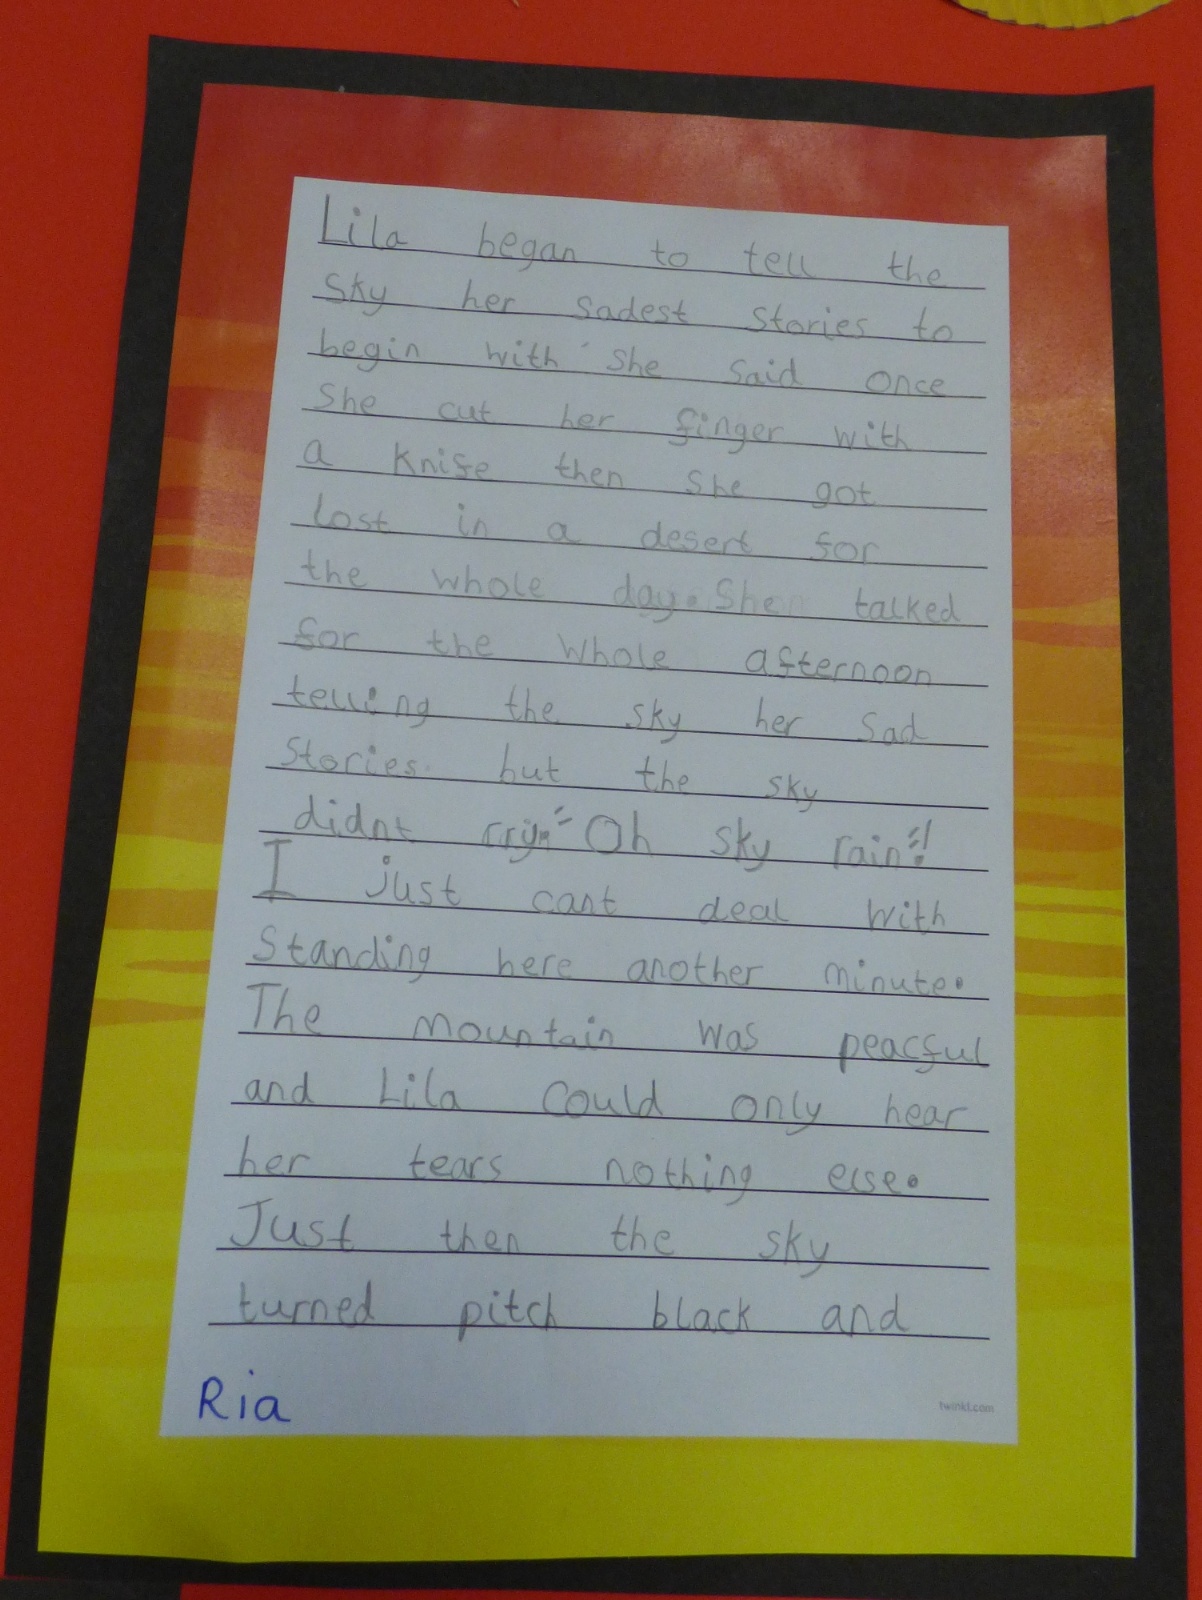 Lila began to tell the
sky her sadest stories to
begin with she said once
she cut her finger with
a knife then she got
lost in a desert for
the whole day. She talked
for the whole afternoon
telling the sky her sad
stories. but the sky
didnt "Oh sky rain"!
I just cant deal with
Standing here another minute.
The mountain was peacful
and Lila could only hear
her tears nothing else.
Just then the sky
turned pitch black and
Ria
twinkl.com